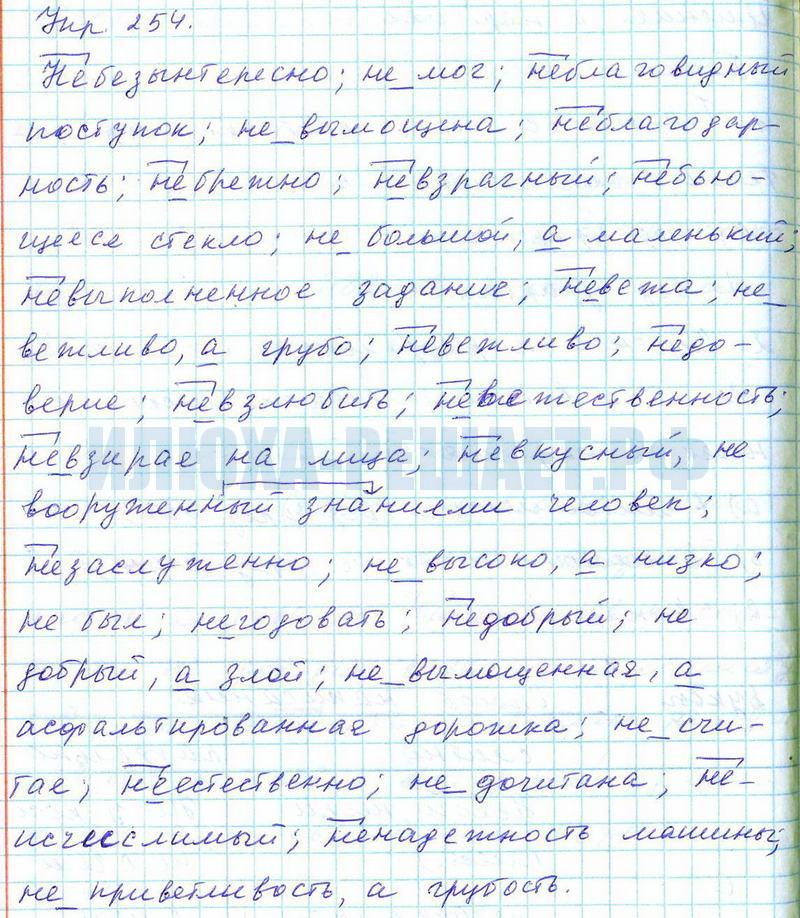 Упр. 254.
Небезынтересно; не мог; неблаговидный
поступок; не вымощена; неблагодар-
ность; небрежно; невзрачный; небью-
щееся стекло; не большой, а маленький;
невыполненное задание; невежа; не
вежливо, а грубо; невежливо; недо-
верие; невзлюбить; невежественность;
невзирая на лица; невкусный, не
вооруженный знаниями человек;
незаслуженно; не высоко, а низко;
не был; негодовать; недобрый; не
добрый, а злой; не вымощенная, а
асфальтированная дорожка; не счи-
тая; неестественно; не дочитана; не-
исчислимый; ненадежность машины;
не приветливость, а грубость.
ИЛЮХА-РЕШАЕТ.РФ